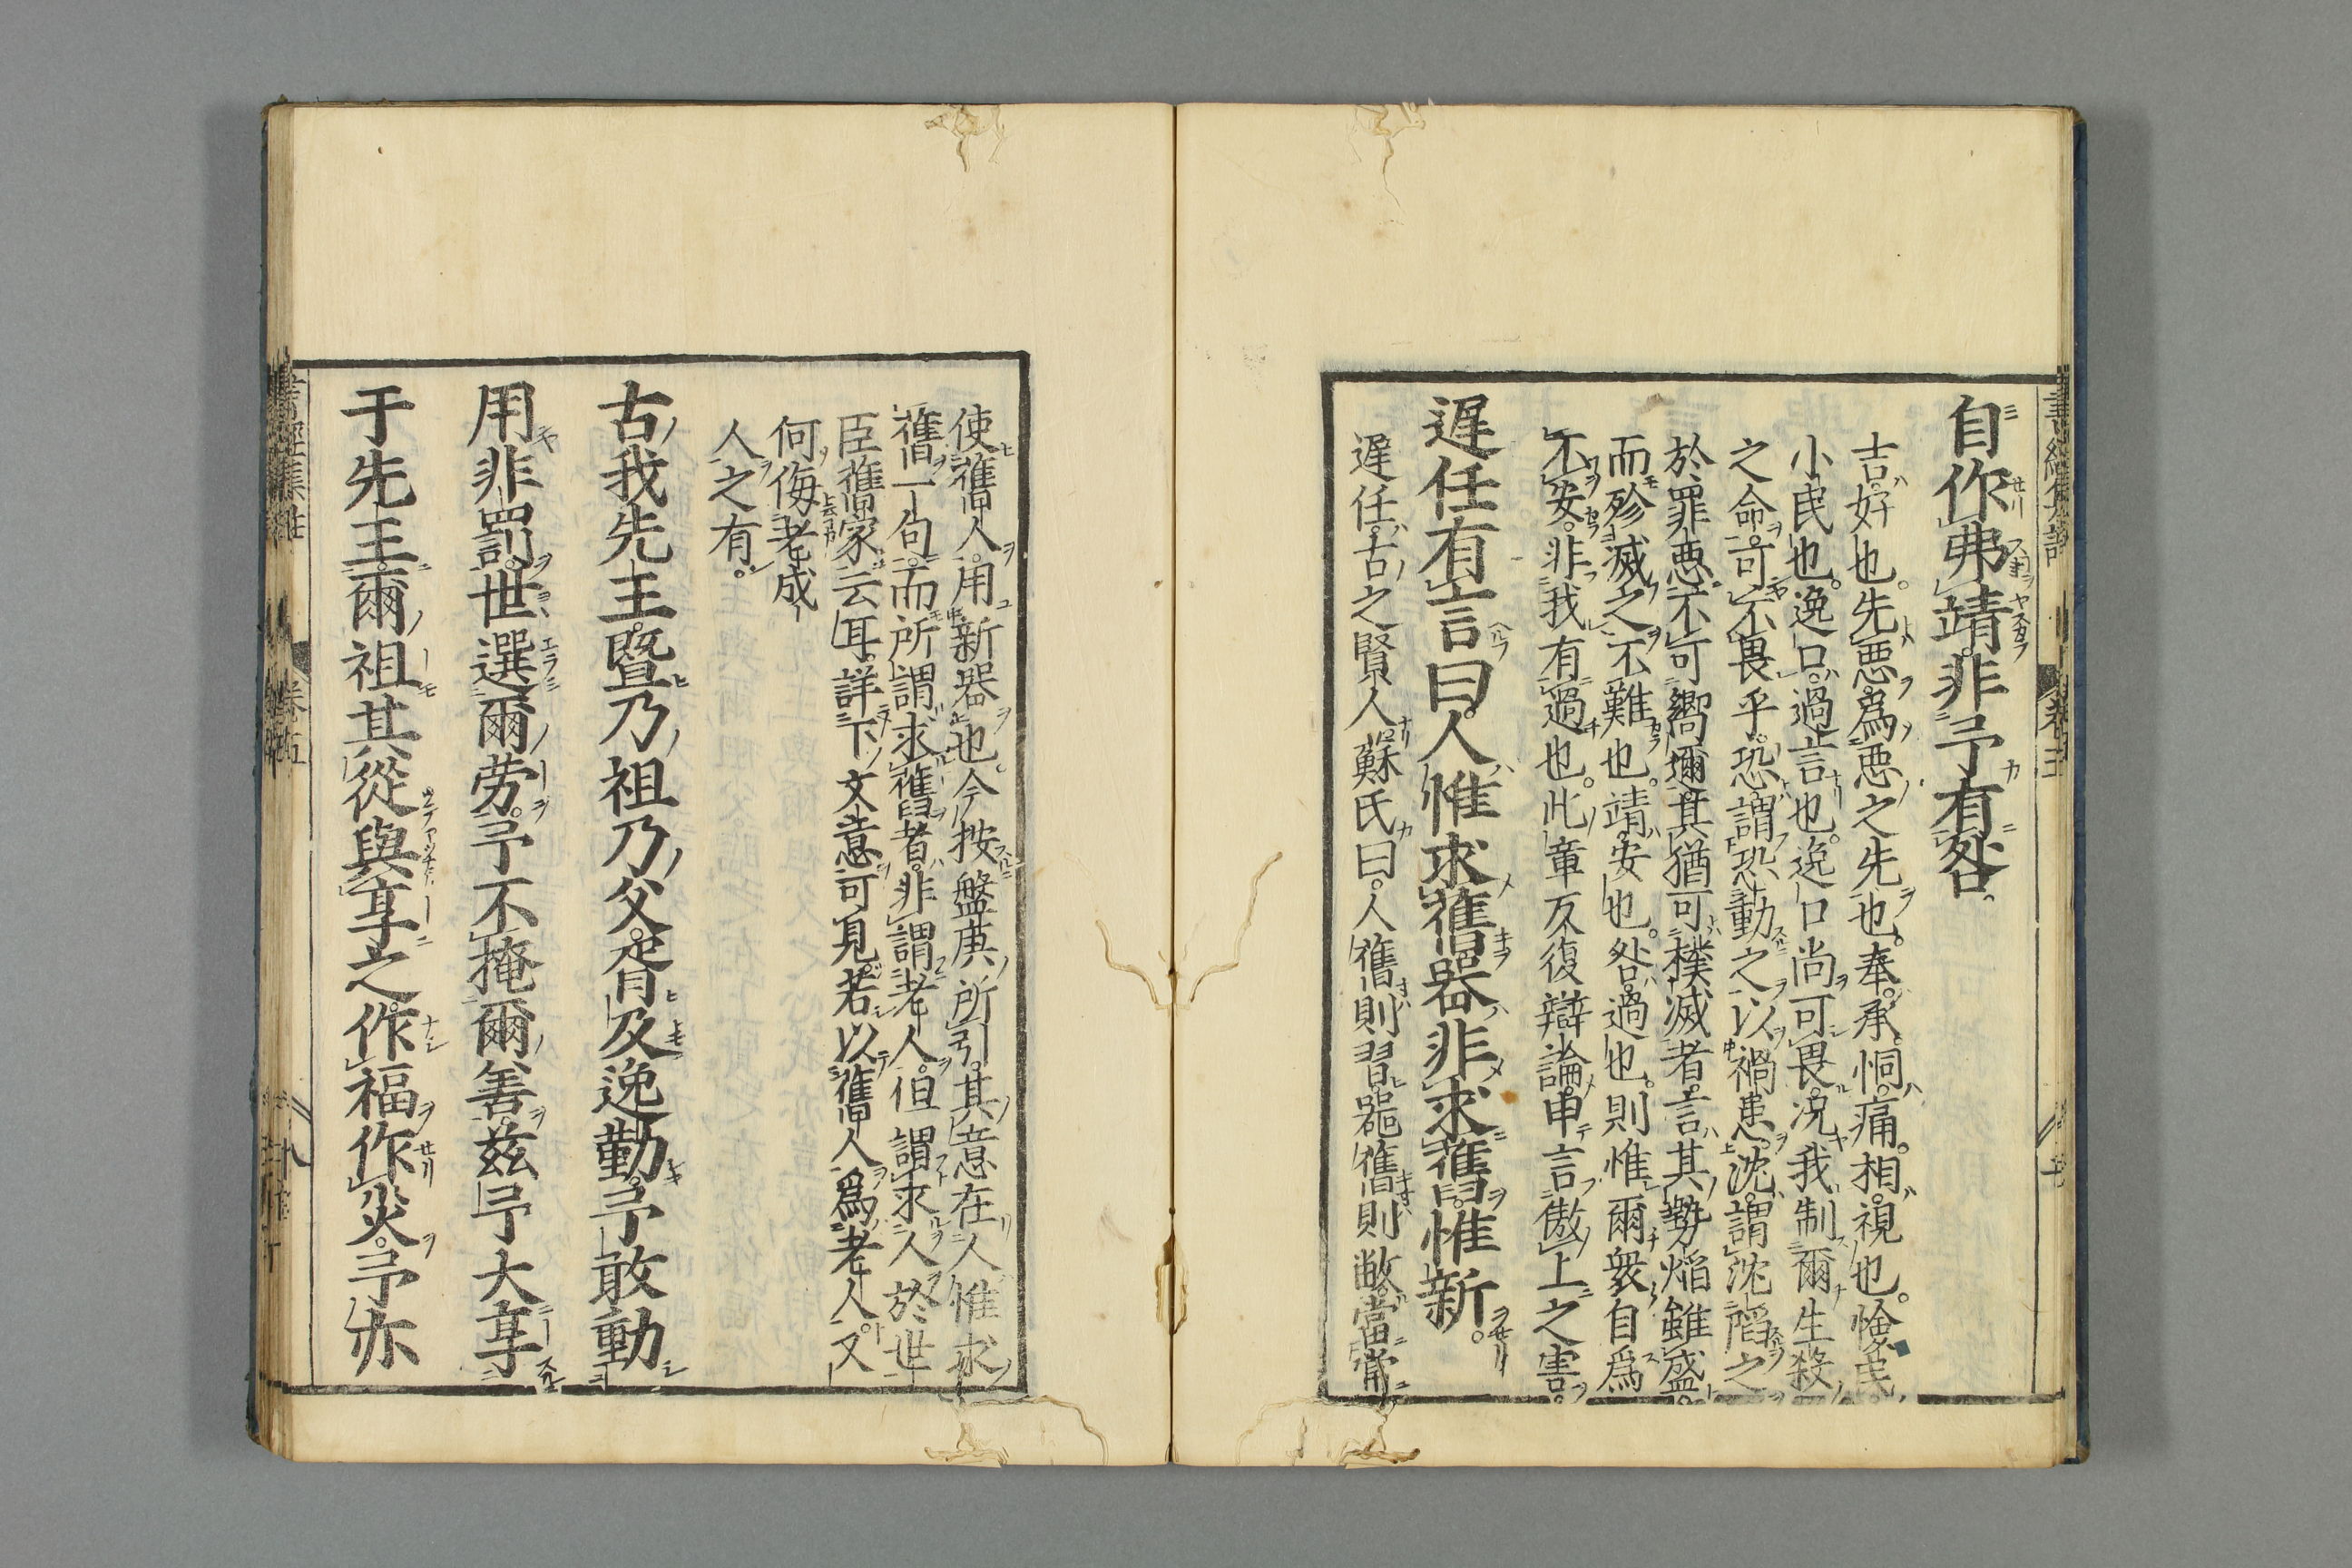 自作弗靖。非予有咎。
吉。好也。先惡。爲惡之先也。奉。承。恫。痛。相。視也。憸民。
小民也。逸口。過言也。逸口尚可畏。況我制爾生殺
之命。可不畏乎。恐。謂恐動之以禍患。沈。謂沈陷之
於罪惡。不可嚮邇。其猶可撲滅者。言其勢焰雖盛。
而殄滅之不難也。靖。安也。咎。過也。則惟爾衆自爲
不安。非我有過也。此章反復辯論。申言傲上之害。
遲任有言曰。人惟求舊。器非求舊。惟新。
遲任。古之賢人。蘇氏曰。人舊則習。器舊則敝。當常
使舊人。用新器也。今按盤庚所引。其意在人惟求
舊一句。而所謂求舊者。非謂老人。但謂求人於世
臣舊家云耳。詳下文意可見。若以舊人爲老人。又
何侮老成
人之有。
古我先王。暨乃祖乃父。胥及逸勤。予敢動
用非罰。世選爾勞。予不掩爾善。茲予大享
于先王。爾祖其從與享之。作福作災。予亦
書經集註
卷五